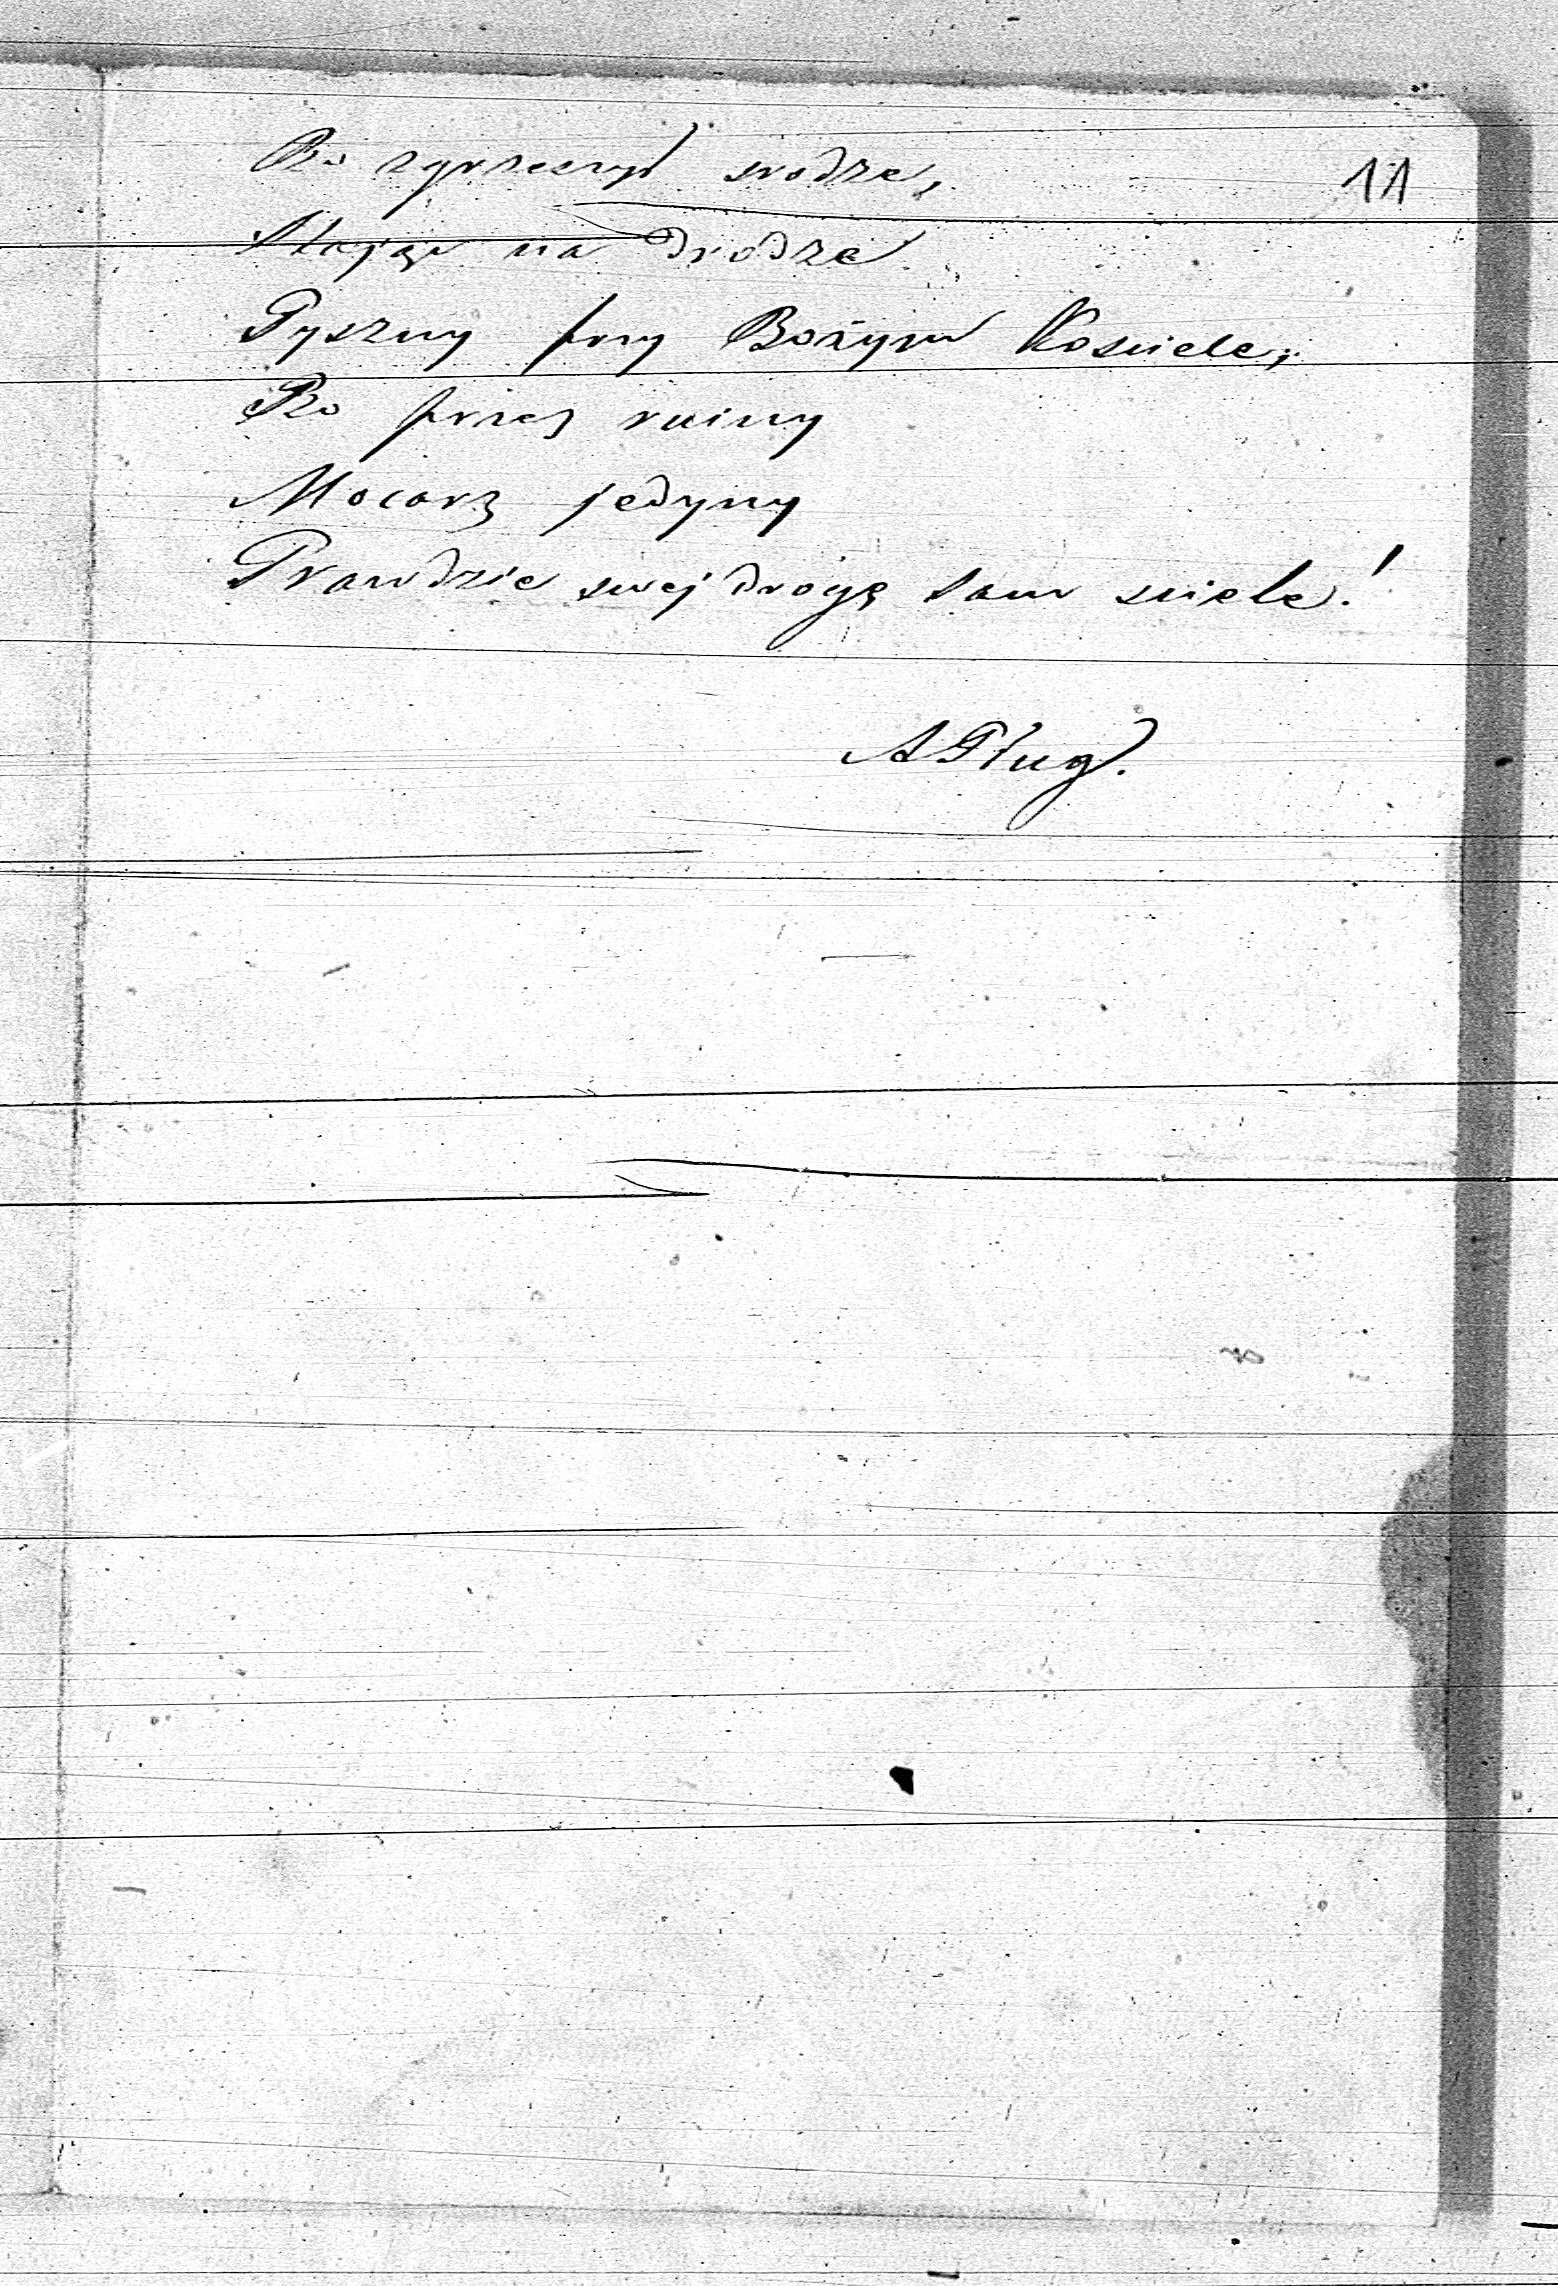 Bo zgrzeszył srodze,
11
Stojąc na drodze
Pyszny przy Bożym Kosciele;
Bo przez ruiny
Mocarz jedyny
Prawdzie swej drogę sam sciele!
A Pług.